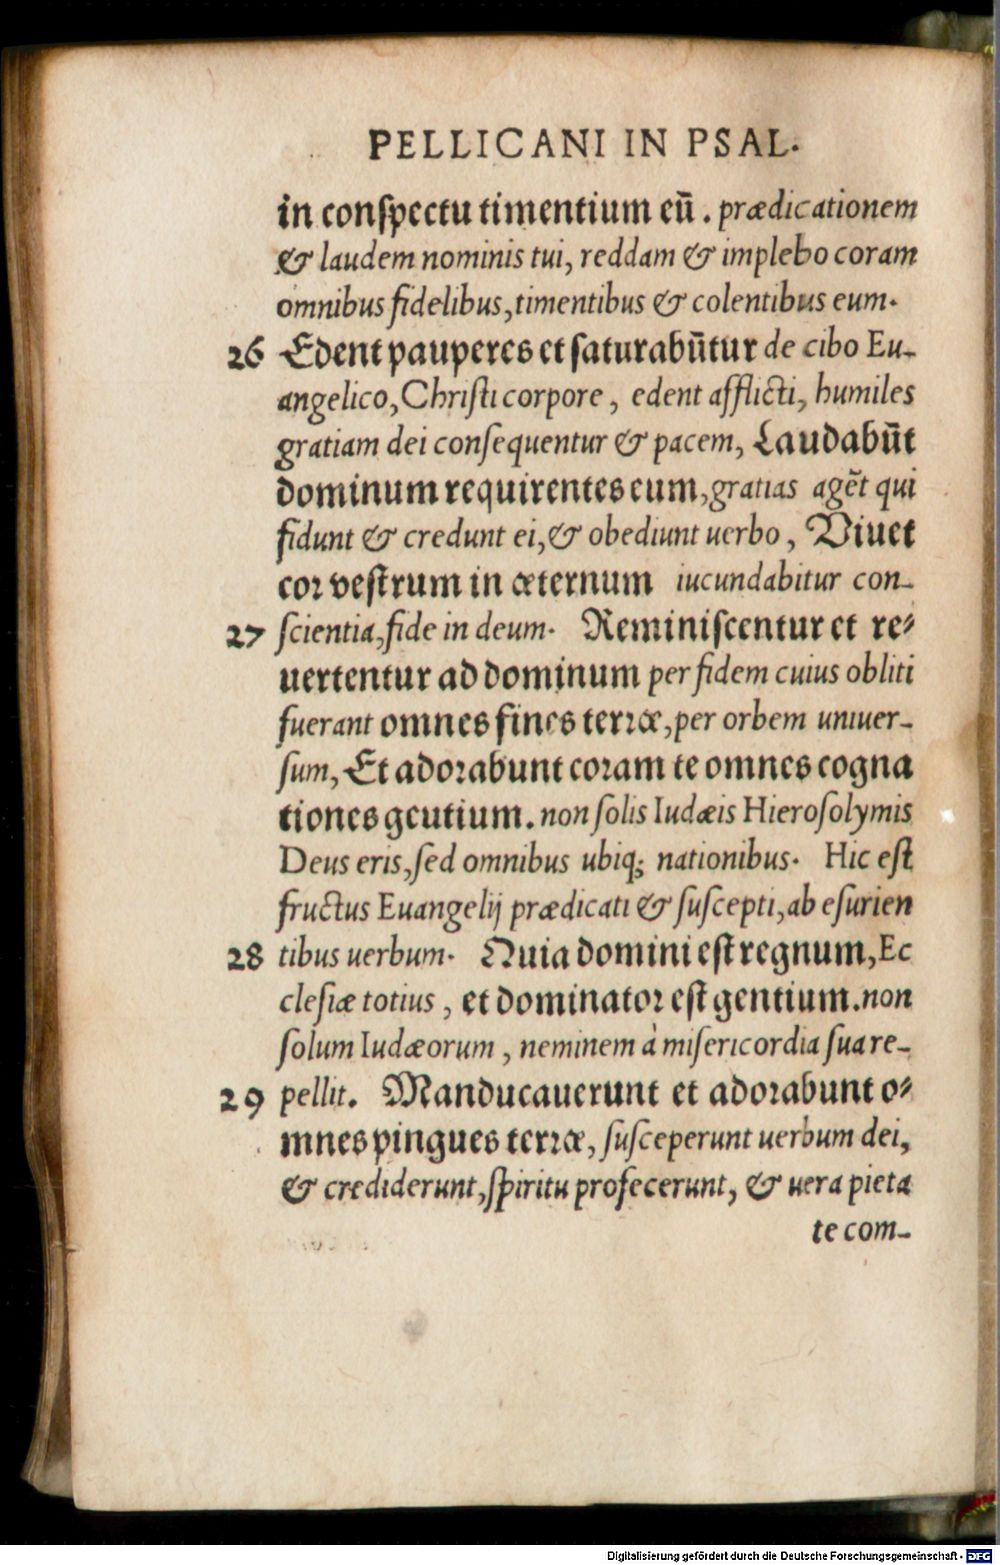 PELLICANI IN PSAL.
in conspectu timentium eū. prædicationem
& laudem nominis tui, reddam & implebo coram
omnibus fidelibus, timentibus & colentibus eum.
26 Edent pauperes et saturabūtur de cibo Eu-
angelico, Christi corpore, edent afflicti, humiles
gratiam dei consequentur & pacem, Laudabūt
dominum requirentes eum, gratias agēt qui
fidunt & credunt ei, & obediunt uerbo, Viuet
cor vestrum in æternum iucundabitur con-
27 scientia, fide in deum. Reminiscentur et re-
uertentur ad dominum per fidem cuius obliti
fuerant omnes fines terræ, per orbem uniuer-
sum, Et adorabunt coram te omnes cogna
tiones geutium. non solis Iudæis Hierosolymis
Deus eris, sed omnibus ubiq; nationibus. Hic est
fructus Euangelij prædicati & suscepti, ab esurien
28 tibus uerbum. Quia domini est regnum, Ec
clesiæ totius, et dominator est gentium. non
solum Iudæorum, neminem à misericordia sua re-
29 pellit. Manducauerunt et adorabunt o-
mnes pingues terræ, susceperunt uerbum dei,
& crediderunt, spiritu profecerunt, & uera pieta
te com-
Digitalisierung gefördert durch die Deutsche Forschungsgemeinschaft - DFG